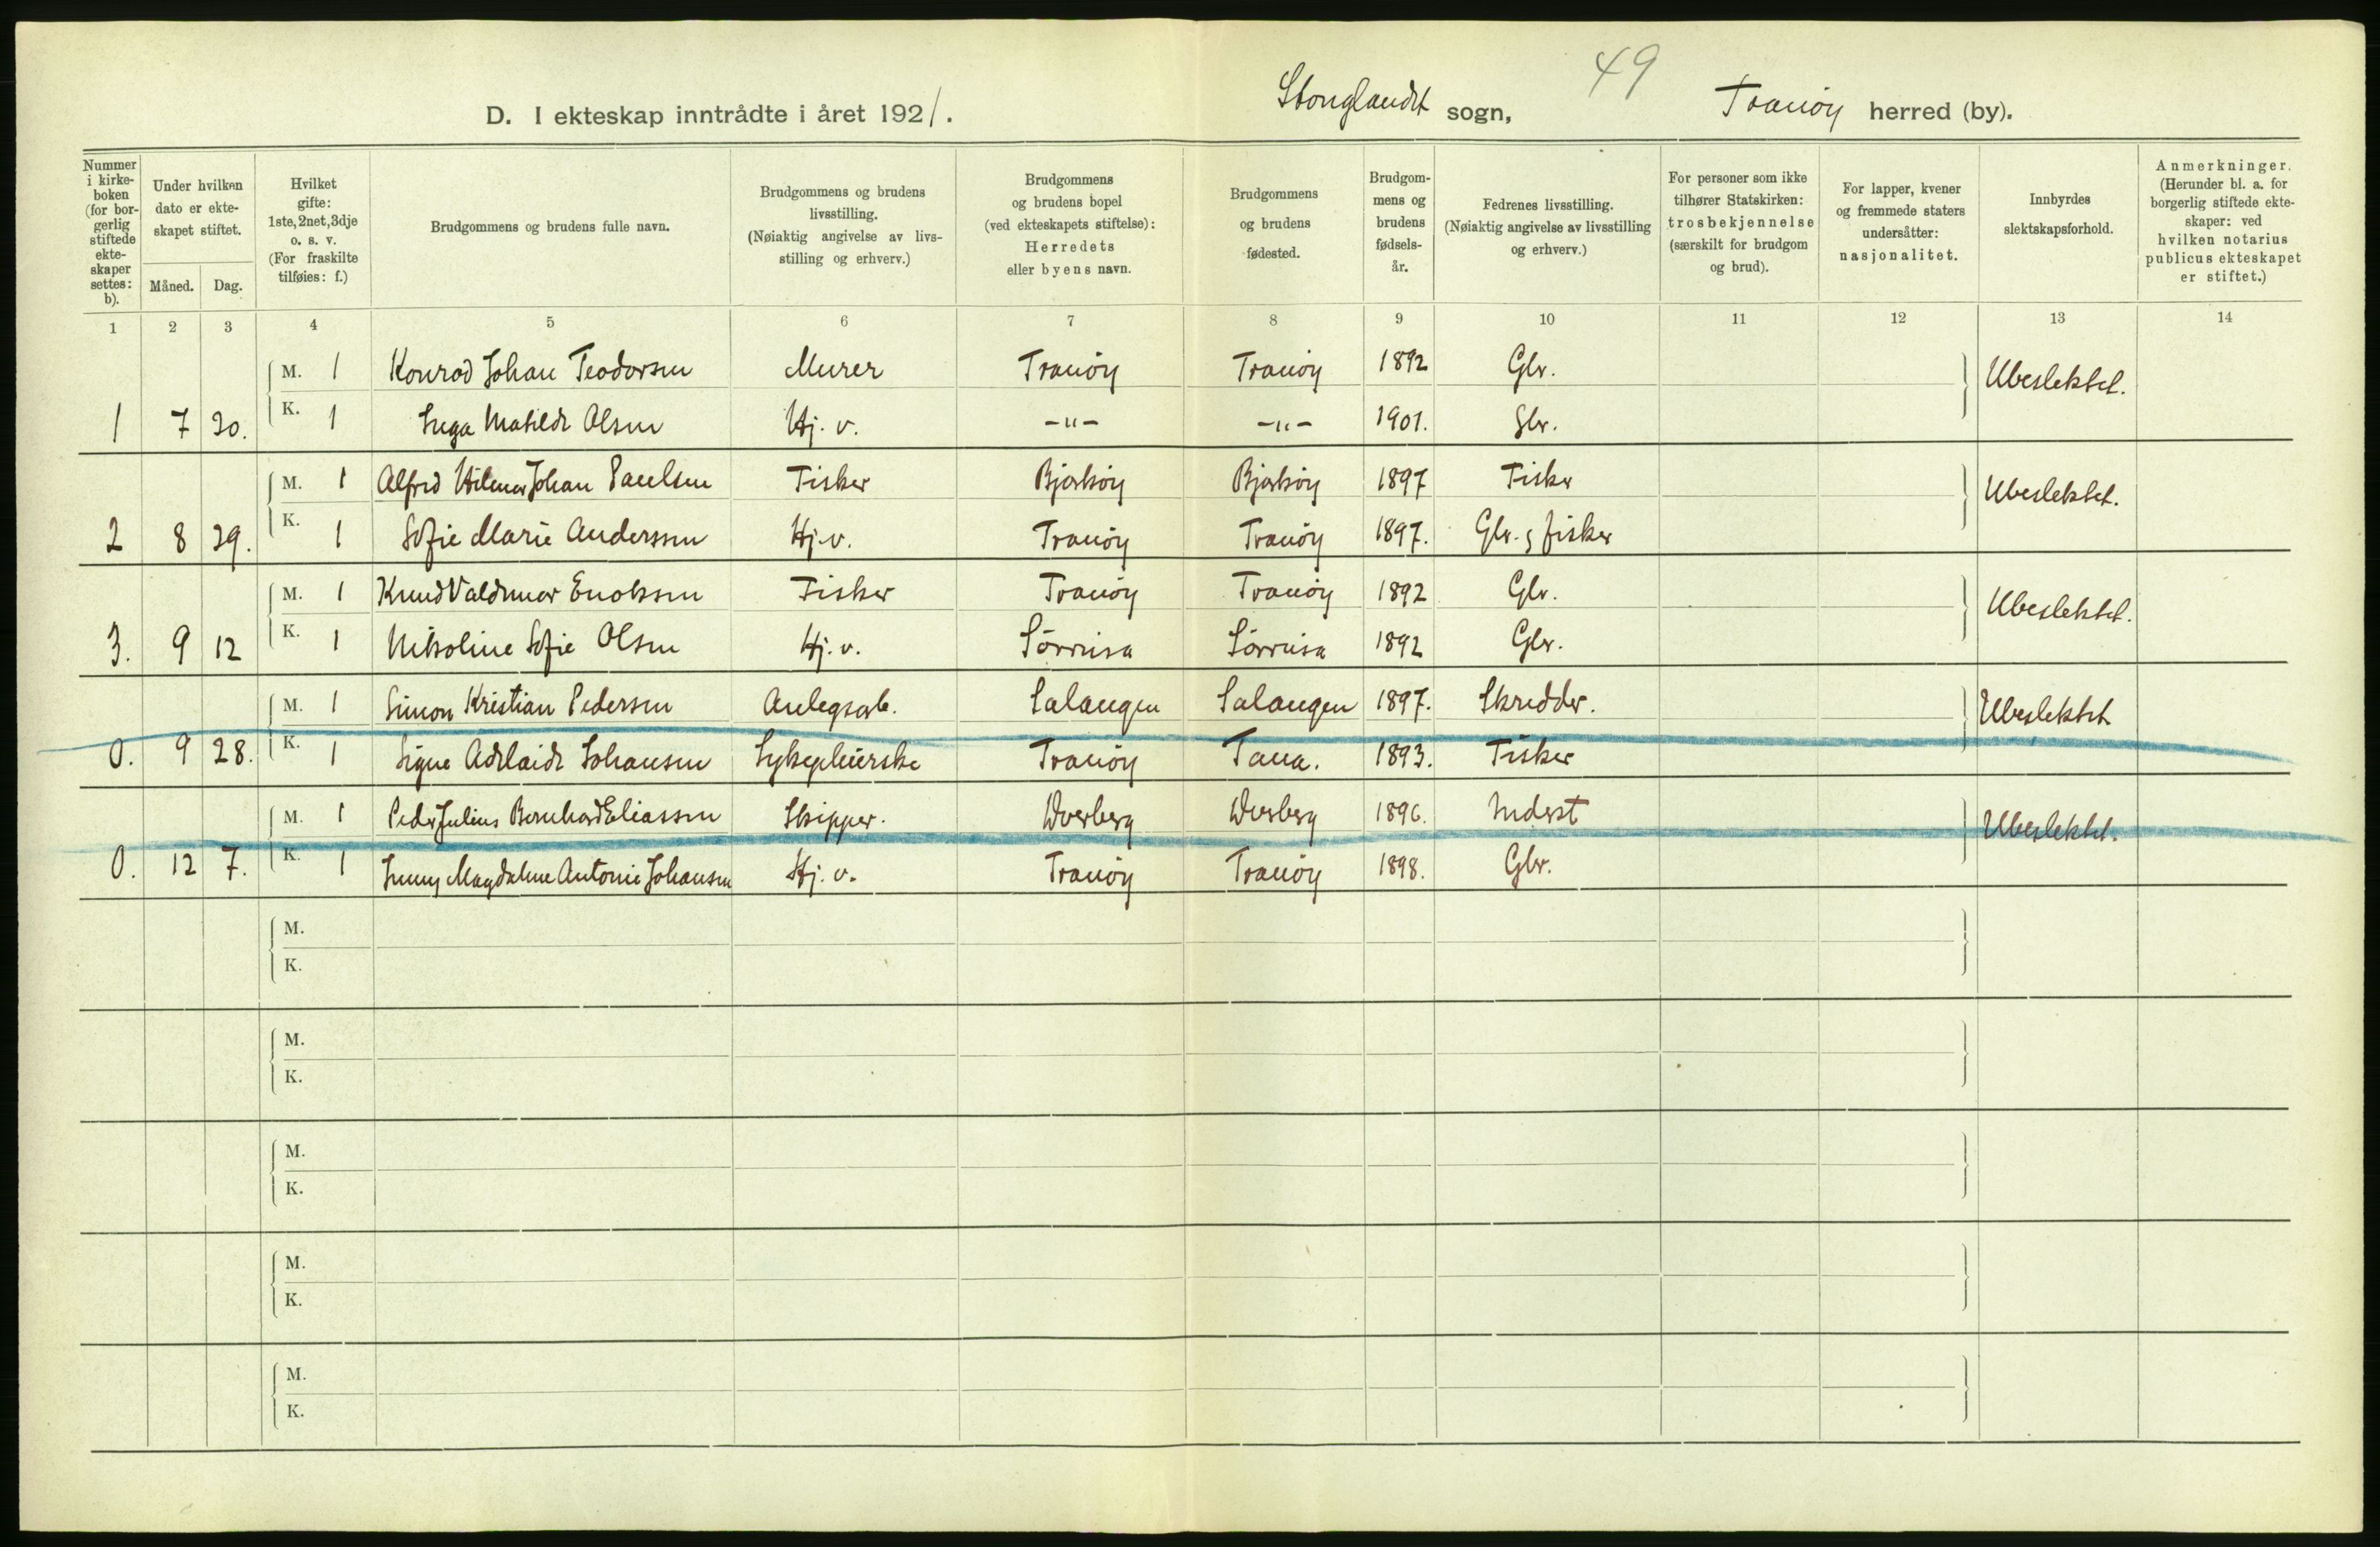 49
D. I ekteskap inntrådte i året 1921. Stonglandet sogn, Tranöy herred (by).
Nummer i kirke-boken (for bor-gerlig stiftede ekte-skaper settes: b).
Under hvilken dato er ekte-skapet stiftet.
Måned. Dag.
Hvilket gifte: 1ste, 2net, 3dje o. s. v. (For fraskilte tilføies: f.)
Brudgommens og brudens fulle navn.
Brudgommens og brudens livsstilling. (Nøiaktig angivelse av livs-stilling og erhverv.)
Brudgommens og brudens bopel (ved ekteskapets stiftelse): Herredets eller byens navn.
Brudgommens og brudens fødested.
Brudgom-mens og brudens fødsels-år.
Fedrenes livsstilling. (Nøiaktig angivelse av livsstilling og erhverv.)
For personer som ikke tilhører Statskirken: trosbekjennelse (særskilt for brudgom og brud).
For lapper, kvener og fremmede staters undersåtter: nasjonalitet.
Innbyrdes slektskapsforhold.
Anmerkninger. (Herunder bl. a. for borgerlig stiftede ekte-skaper: ved hvilken notarius publicus ekteskapet er stiftet.)
1 2 3 4 5 6 7 8 9 10 11 12 13 14
M. 1 Konrad Johan Teodorsen Murer Tranöy Tranöy 1892 Gbr. Ubeslektet.
1 7 30. K. 1 Inga Matilde Olsen Hj. v. -"- -"- 1901. Gbr.
M. 1 Alfred Hilmar Johan Paulsen Fisker Bjarköy Bjarköy 1897 Fisker Ubeslektet.
2 8 29. K. 1 Sofie Marie Anderssen Hj. v. Tranöy Tranöy 1897. Gbr. & fisker
M. 1 Knud Valdemar Enoksen Fisker Tranöy Tranöy 1892 Gbr. Ubeslektet.
3. 9 12 K. 1 Nikoline Sofie Olsen Hj. v. Sörreisa Sörreisa 1892 Gbr.
M. 1 Simon Kristian Pedersen Anlegsarb. Salangen Salangen 1897. Skredder. Ubeslektet
0. 9 28. K. 1 Signe Adelaide Johansen Sykepleierske Tranöy Tana. 1893. Fisker
M. 1 Peder Julius Bernhard Eliassen Skipper. Dverberg Dverberg 1896. Inderst Ubeslektet.
0. 12 7. K. 1 Jenny Magdalene Antonie Johansen Hj. v. Tranöy Tranöy 1898. Gbr.
M.
K.
M.
K.
M.
K.
M.
K.
M.
K.